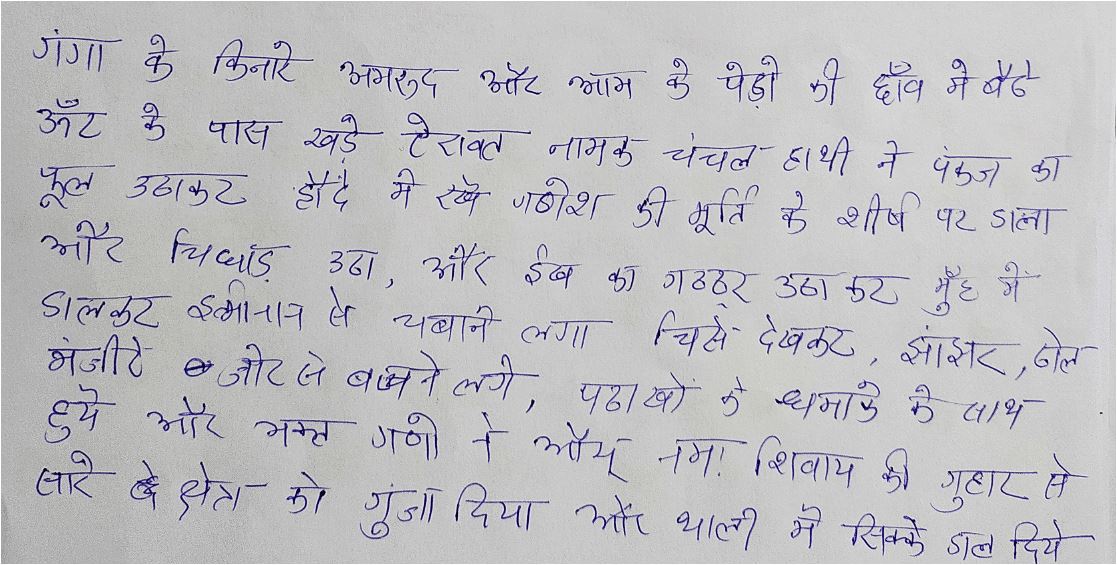 गंगा के किनारे अमरुद और आम के पेड़ो की छाँव मे बैठे
ऊँट के पास खड़े ऐरावत नामक चंचल हाथी ने पंकज का
फूल उठाकर हौदे मे रखे गणेश की मूर्ति के शीर्ष पर डाला
और चिंघाड़ उठा, और ईख का गठ्ठर उठाकर मुँह में
डालकर इत्मीनान से चबाने लगा जिसे देखकर, झांझर, ढोल
मंजीरे जोर से बजने लगे, पटाखों के धमाके के साथ
हुये और भक्त गणो ने ओम् नमः शिवाय की गुहार से
सारे क्षेत्र को गुंजा दिया और थाली मे सिक्के डाल दिये